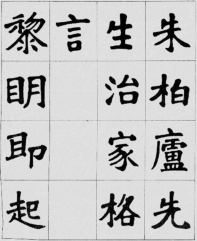 朱柏廬先
生治家格
言
黎明即起